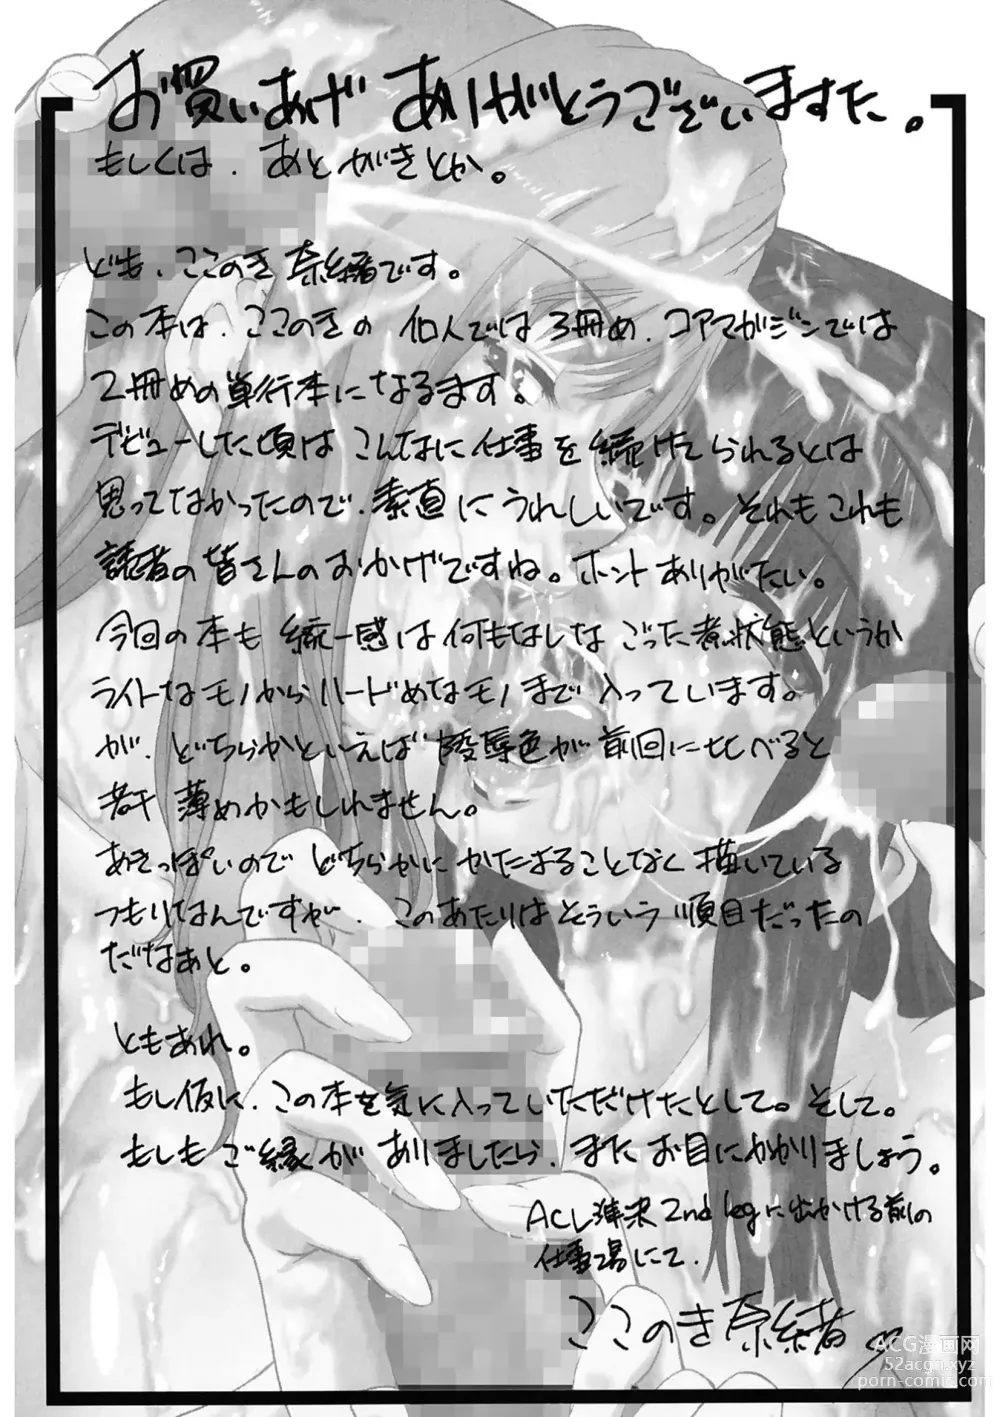 お買いあげ ありがとうございますた。
もしくは、あとがきとか。
ども、ここのき奈緒です。
この本は、ここのきの個人では3冊め、コアマガジンでは
2冊めの単行本になるます。
デビューした頃はこんなに仕事を続けてられるとは
思ってなかったので、素直にうれしいです。それもこれも
読者の皆さんのおかげですね。ホントありがたい。
今回の本も統一感は何もなしなごった煮状態というか
ライトなモノからハードめなモノまで入っています。
が、どちらかといえば陵辱色が前回に比べると
若干薄めかもしれません。
あきっぽいのでどちらかにかたまることなく描いている
つもりなんですが、このあたりはそういう順目だったの
だなぁと。
ともあれ。
もし仮に、この本を気に入っていただけたとして。そして。
もしもご縁がありましたら、またお目にかかりましょう。
ACL準決2nd legに出かける前の
仕事場にて、
ここのき奈緒
ACG漫画网
52acgn.xyz
porn-comic.com